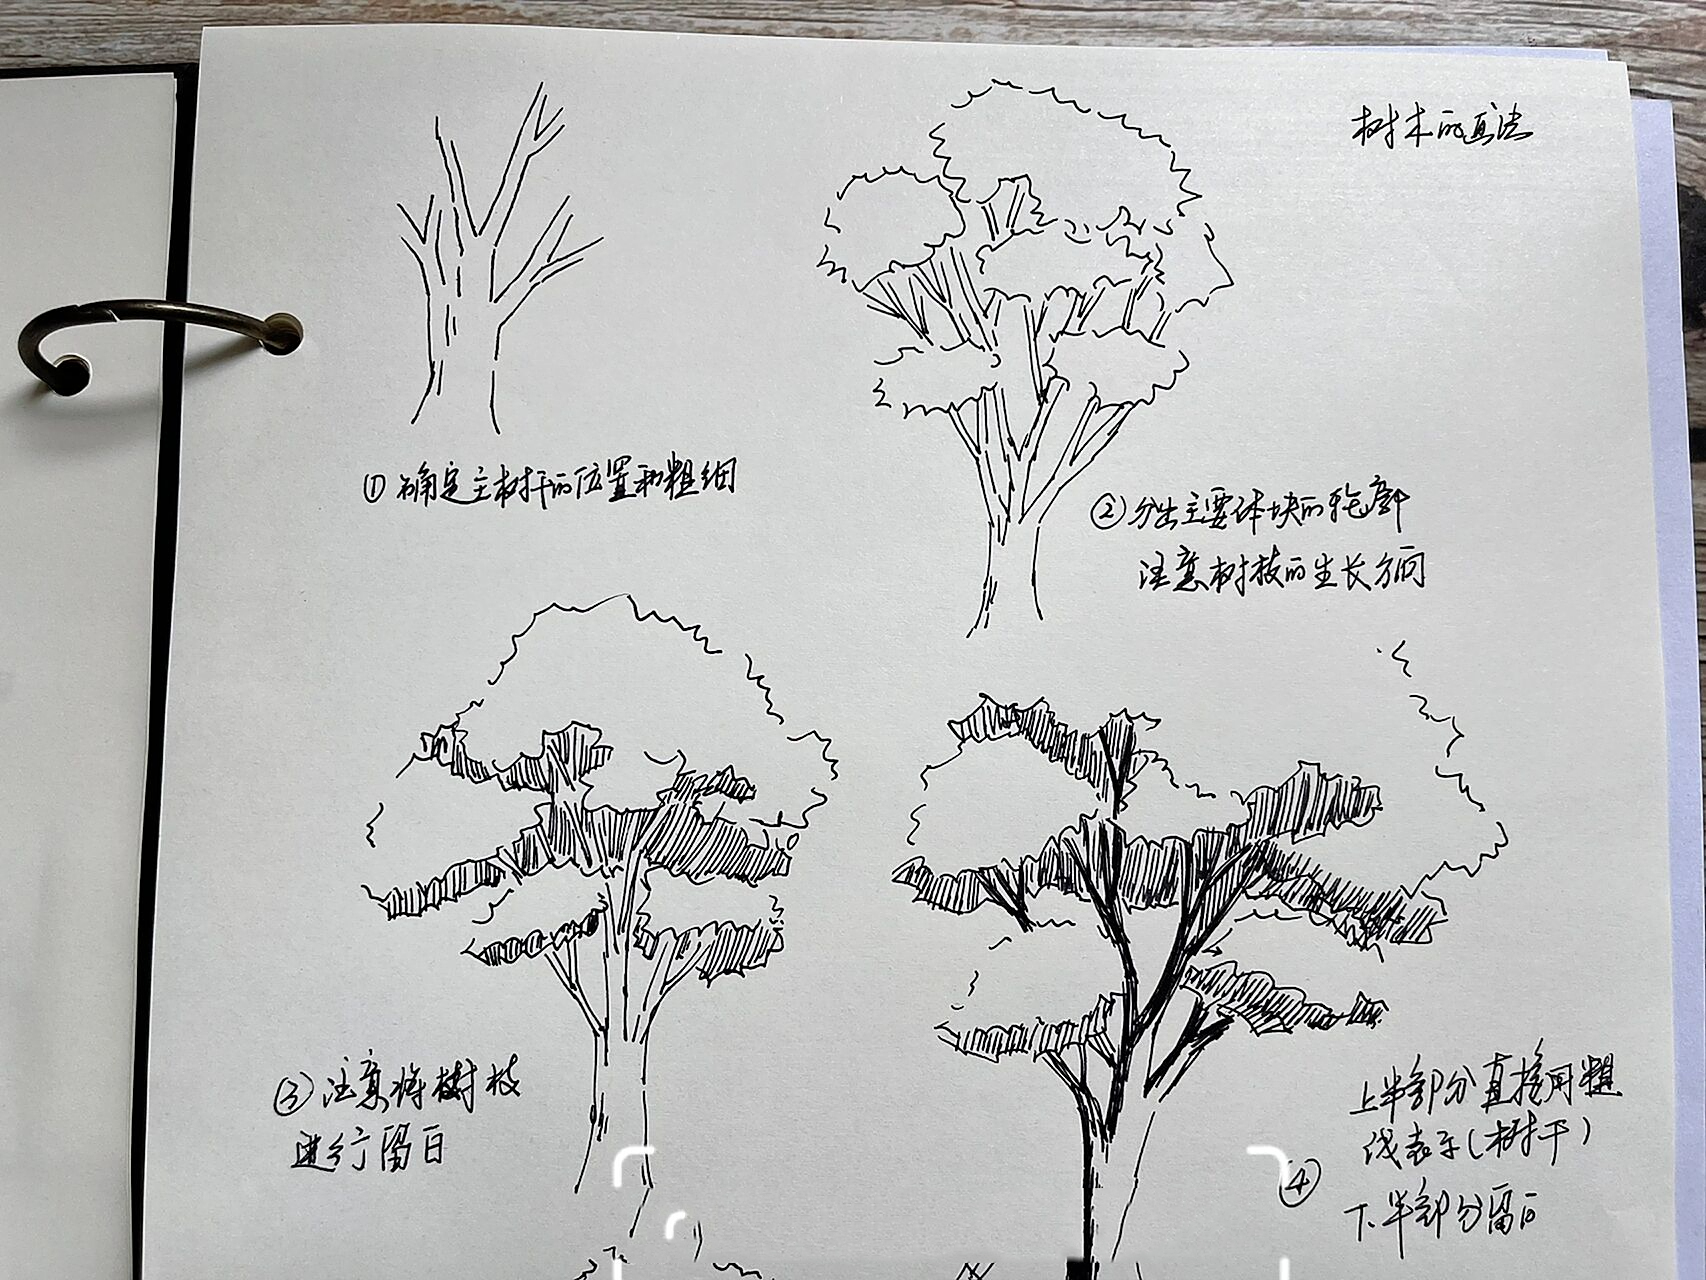 树木的画法
①确定主树干的位置和粗细
②分出主要体块的轮廓
注意树枝的生长方向
③注意将树枝
进行留白
上半部分直接用粗
线表示(树干)
④
下半部分留白